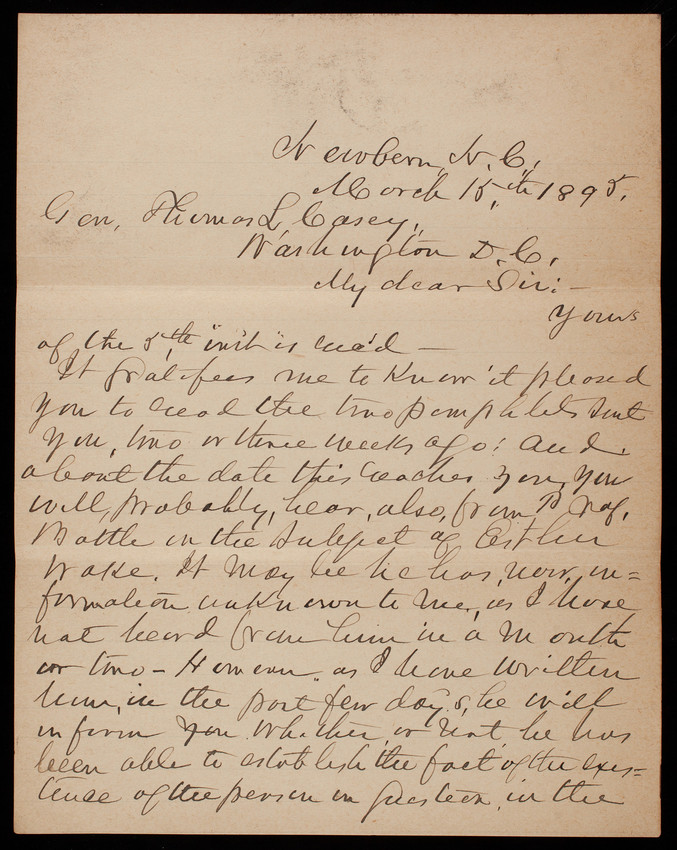 Newbern, N. C.,
March 15,th 1895.
Gen, Thomas L. Casey,,
Washington D. C.
My dear Sir:—
Yours
of the 5,th inst is rec'd —
It gratifies me to know it pleased
you to read the two pamphlets sent
you, two or three weeks ago: and
about the date this reaches you, you
will, probably, hear, also, from Prof.
Battle on the subject of Esther
Wake. It may be he has, now, in=
formation unknown to me, as I have
not heard from him in a month
or two — However as I have written
him, in the past few days, he will
inform you whether, or not, he has
been able to establish the fact of the exis=
tence of the person in question, in the